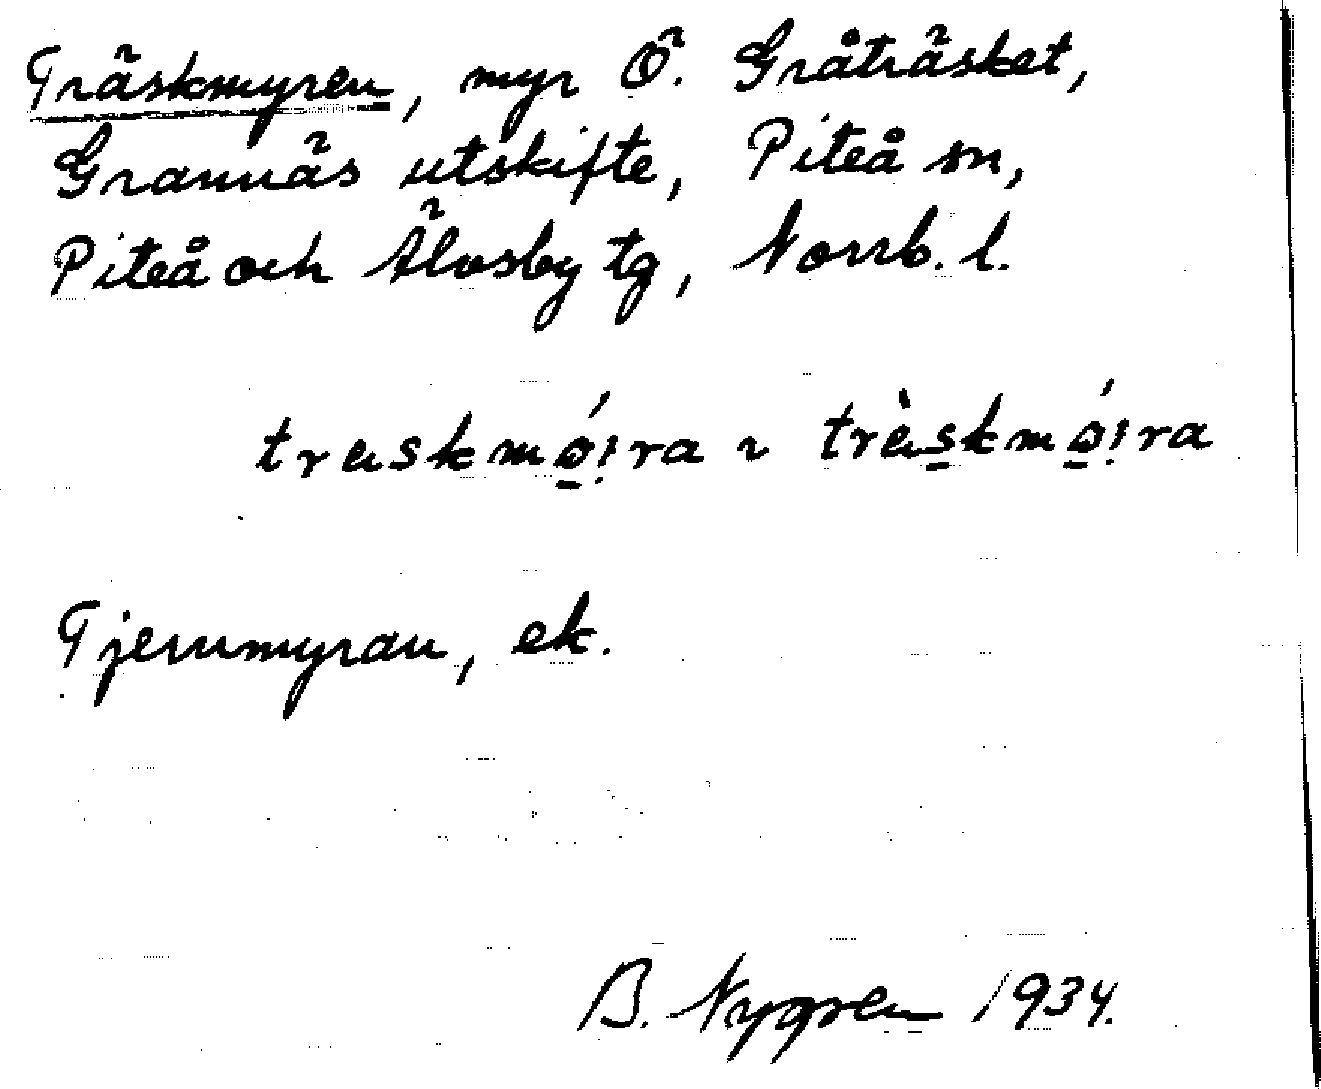 Träskmyren, myr Ö. Gråträsket,
Grannäs utskifte, Piteå sn,
Piteå och Älvsby tg, Norrb. l.
träskmǿ̠!ra ~ trä̀s̠kmǿ̠!ra
Tjernmyran, ek.
B. Nygren 1934.